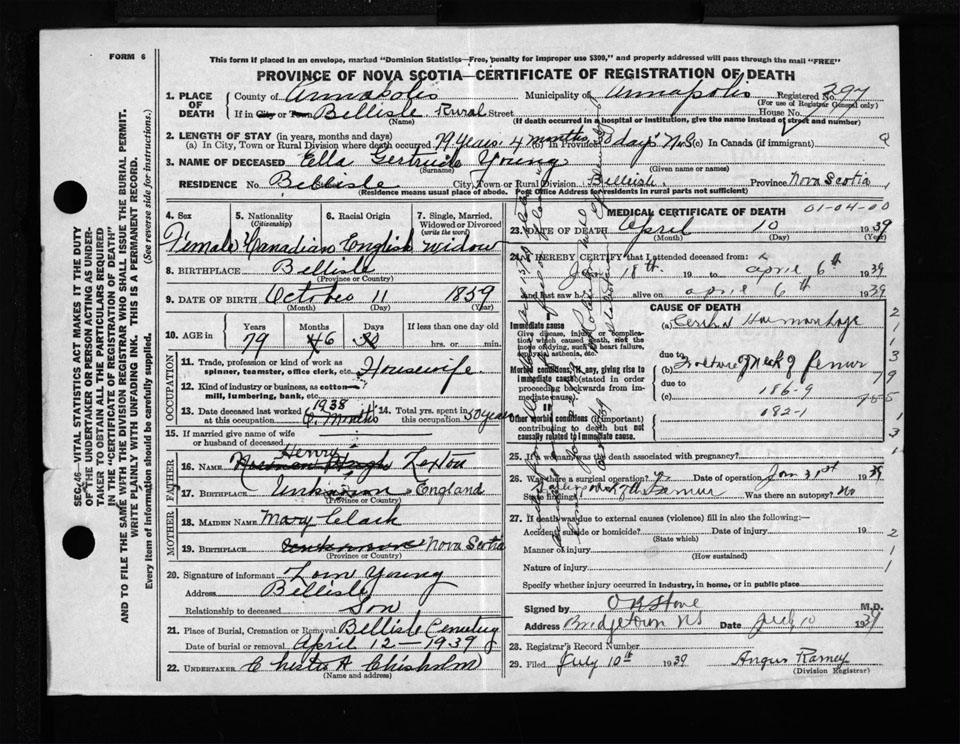 FORM 6
This form if placed in an envelope, marked "Dominion Statistics—Free, penalty for improper use $300," and properly addressed will pass through the mail "FREE"
PROVINCE OF NOVA SCOTIA—CERTIFICATE OF REGISTRATION OF DEATH
1. PLACE OF DEATH County of Annapolis Municipality of Annapolis Registered No. 297
(For use of Registrar General only)
If in City or Town Bellisle Rural Street House No.
(Name) (If death occurred in a hospital or institution, give the name instead of street and number)
2. LENGTH OF STAY (in years, months and days)
(a) In City, Town or Rural Division where death occurred 79 years. 4 months (b) In Province days N.S (c) In Canada (if immigrant)
3. NAME OF DECEASED Ella Gertrude Young
(Surname) (Given name or names)
RESIDENCE No. Bellisle City, Town or Rural Division Bellisle. Province Nova Scotia
(Residence means usual place of abode. Post Office Address for residents in rural parts not sufficient)
4. Sex 5. Nationality (Citizenship) 6. Racial Origin 7. Single, Married, Widowed or Divorced (write the word)
Female Canadian English widow
8. BIRTHPLACE Bellisle
(Province or Country)
9. DATE OF BIRTH October 11 1859
(Month) (Day) (Year)
10. AGE in Years Months Days If less than one day
79 6 hrs. or min.
OCCUPATION
11. Trade, profession or kind of work as spinner, teamster, office clerk, etc. Housewife
12. Kind of industry or business, as cotton mill, lumbering, bank, etc.
13. Date deceased last worked at this occupation 1938 14. Total yrs. spent in this occupation 50 years
15. If married give name of wife or husband of deceased
FATHER
16. NAME Henry
17. BIRTHPLACE Unknown England
(Province or Country)
MOTHER
18. MAIDEN NAME Mary Clark
19. BIRTHPLACE Unknown Nova Scotia
(Province or Country)
20. Signature of informant Young
Address Bellisle
Relationship to deceased Son
21. Place of Burial, Cremation or Removal Bellisle Cemetery
Date of burial or removal April 12 - 1939
22. UNDERTAKER Chester A Chisholm
(Name and address)
MEDICAL CERTIFICATE OF DEATH 01-04-00
23. DATE OF DEATH April 10 1939
(Month) (Day) (Year)
24. I HEREBY CERTIFY that I attended deceased from
18th 19 to April 6th 1939
and last saw h alive on April 6th 1939
CAUSE OF DEATH
Immediate cause
Give disease, injury, or complication which caused death, not the mode of dying, such as heart failure, asphyxia, asthenia, etc.
(a) Hoemorrhage
due to
Morbid conditions, if any, giving rise to immediate cause (stated in order proceeding backwards from immediate cause).
(b) Fracture of Neck of Femur
due to
(c) 186-9
II
182-1
Other morbid conditions (if important) contributing to death but not causally related to immediate cause.
25. If a woman, was the death associated with pregnancy?
26. Was there a surgical operation? Date of operation Jan 31st 1939
State findings Was there an autopsy? No
27. If death was due to external causes (violence) fill in also the following:—
Accident, suicide or homicide? Date of injury 19
(State which)
Manner of injury
(How sustained)
Nature of injury
Specify whether injury occurred in industry, in home, or in public place
Signed by M.D.
Address Bridgetown NS Date July 10 1939
28. Registrar's Record Number
29. Filed July 10th 1939 Angus Ramey
(Division Registrar)
SEC. 46—VITAL STATISTICS ACT MAKES IT THE DUTY
OF THE UNDERTAKER OR PERSON ACTING AS UNDER-
TAKER TO OBTAIN ALL THE PARTICULARS REQUIRED
IN THE "CERTIFICATE OF REGISTRATION OF DEATH"
AND TO FILE THE SAME WITH THE DIVISION REGISTRAR WHO SHALL ISSUE THE BURIAL PERMIT.
WRITE PLAINLY WITH UNFADING INK. THIS IS A PERMANENT RECORD.
Every item of information should be carefully supplied. (See reverse side for instructions.)